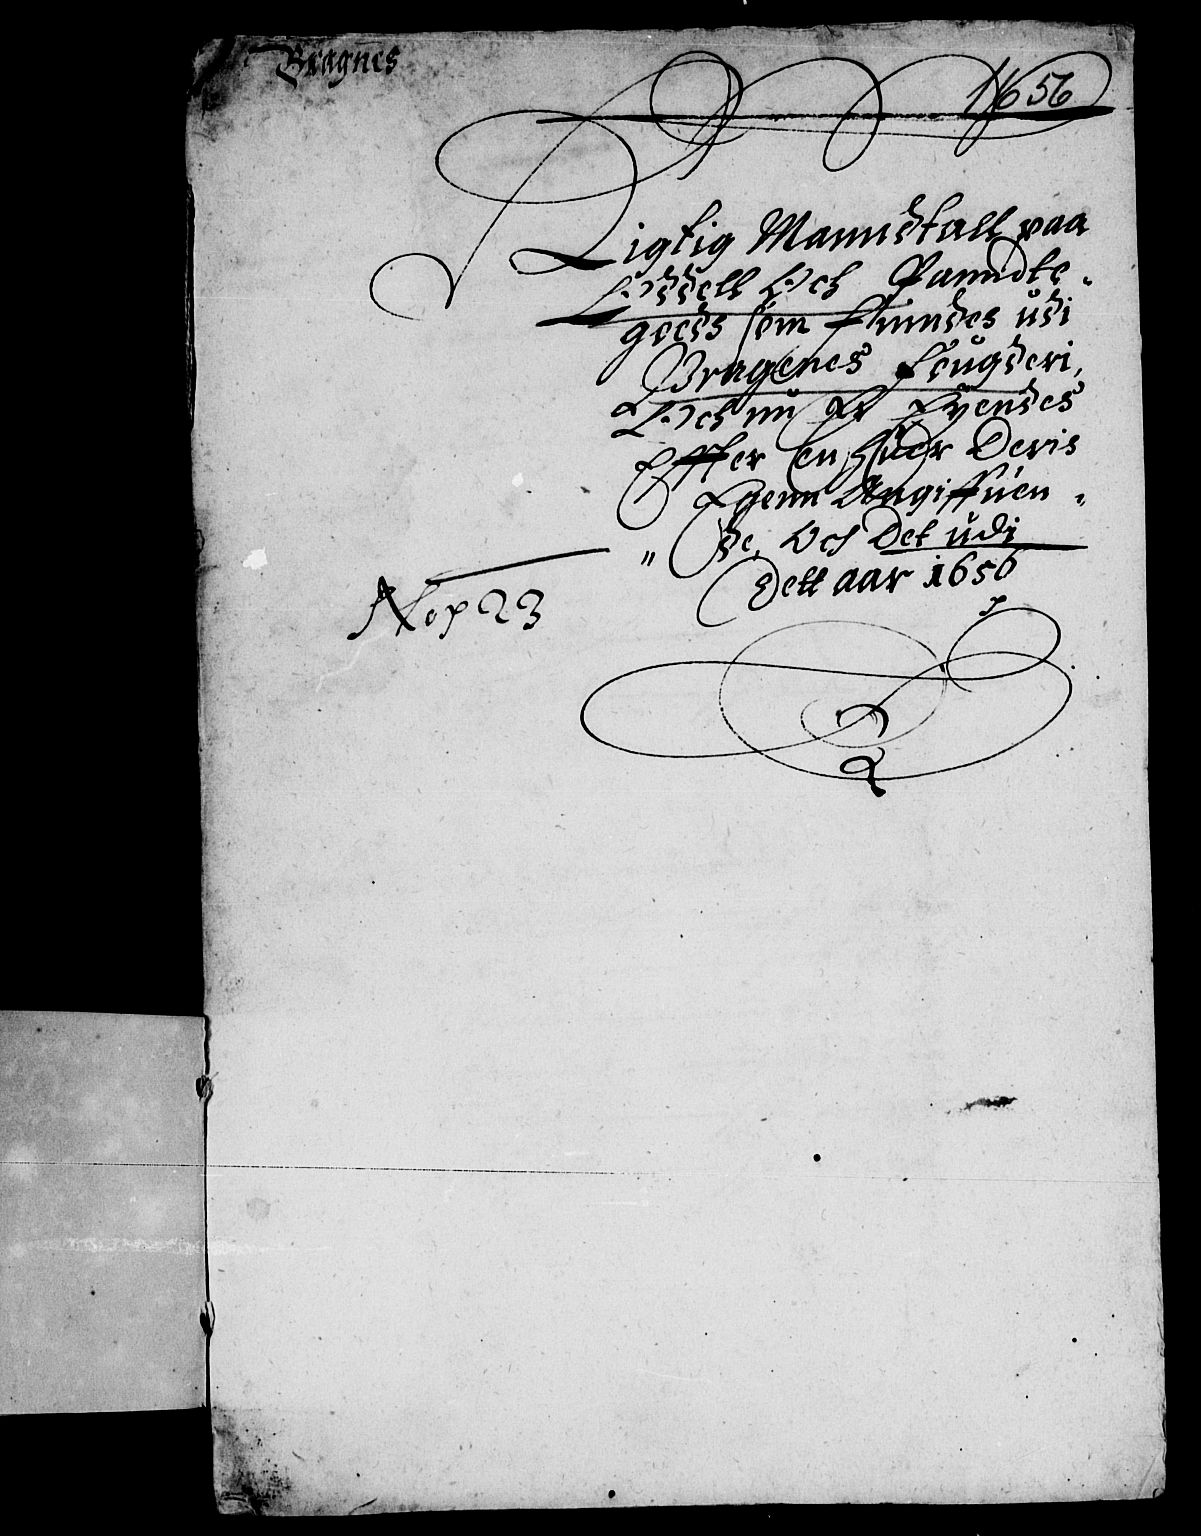 Bragnes
1656
Rigtig Manndtall paa
Odell Och Panndte-
goeds som Findes udi
Bragenes Fougderi,
Och nu Er Eyendes
Effter en huer Deris
Egenn Angiffuen-
de, Och Det udi
Dett aar 1656
No 23